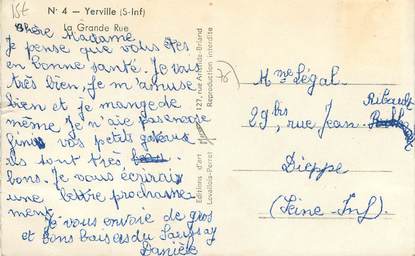 15€
N° 4 - Yerville (S-Inf)
La Grande Rue
Chère Madame
Je pense que vous êtes
en bonne santé. Je vais
très bien, Je m'amuse
bien et je mange de
même Je n'aie pas encore
finis vos petits gateaux
ils sont très
bons. Je vous écrirais
une lettre prochaine-
ment.
Je vous envoie de gros
et bons baisers du
Danièle
Editions d'art
Levallois-Perret
127, rue Aristide-Briand
Reproduction interdite
Mme Légal
29 bis, rue Jean Ribault
Dieppe
(Seine-Inf)